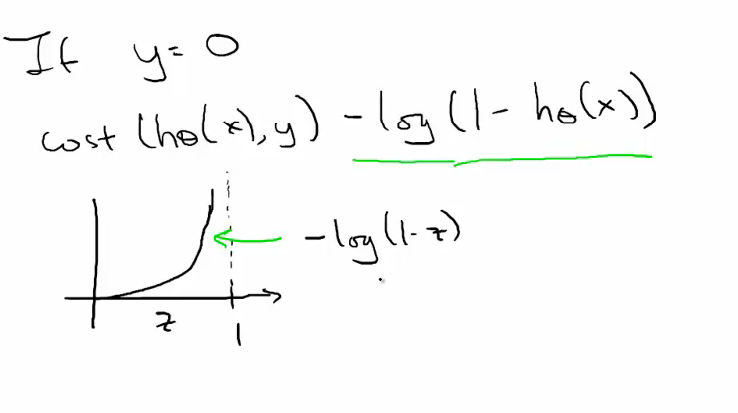 If y = 0
cost (hθ(x), y) - log (1 - hθ(x))
- log (1 - z)
z
1